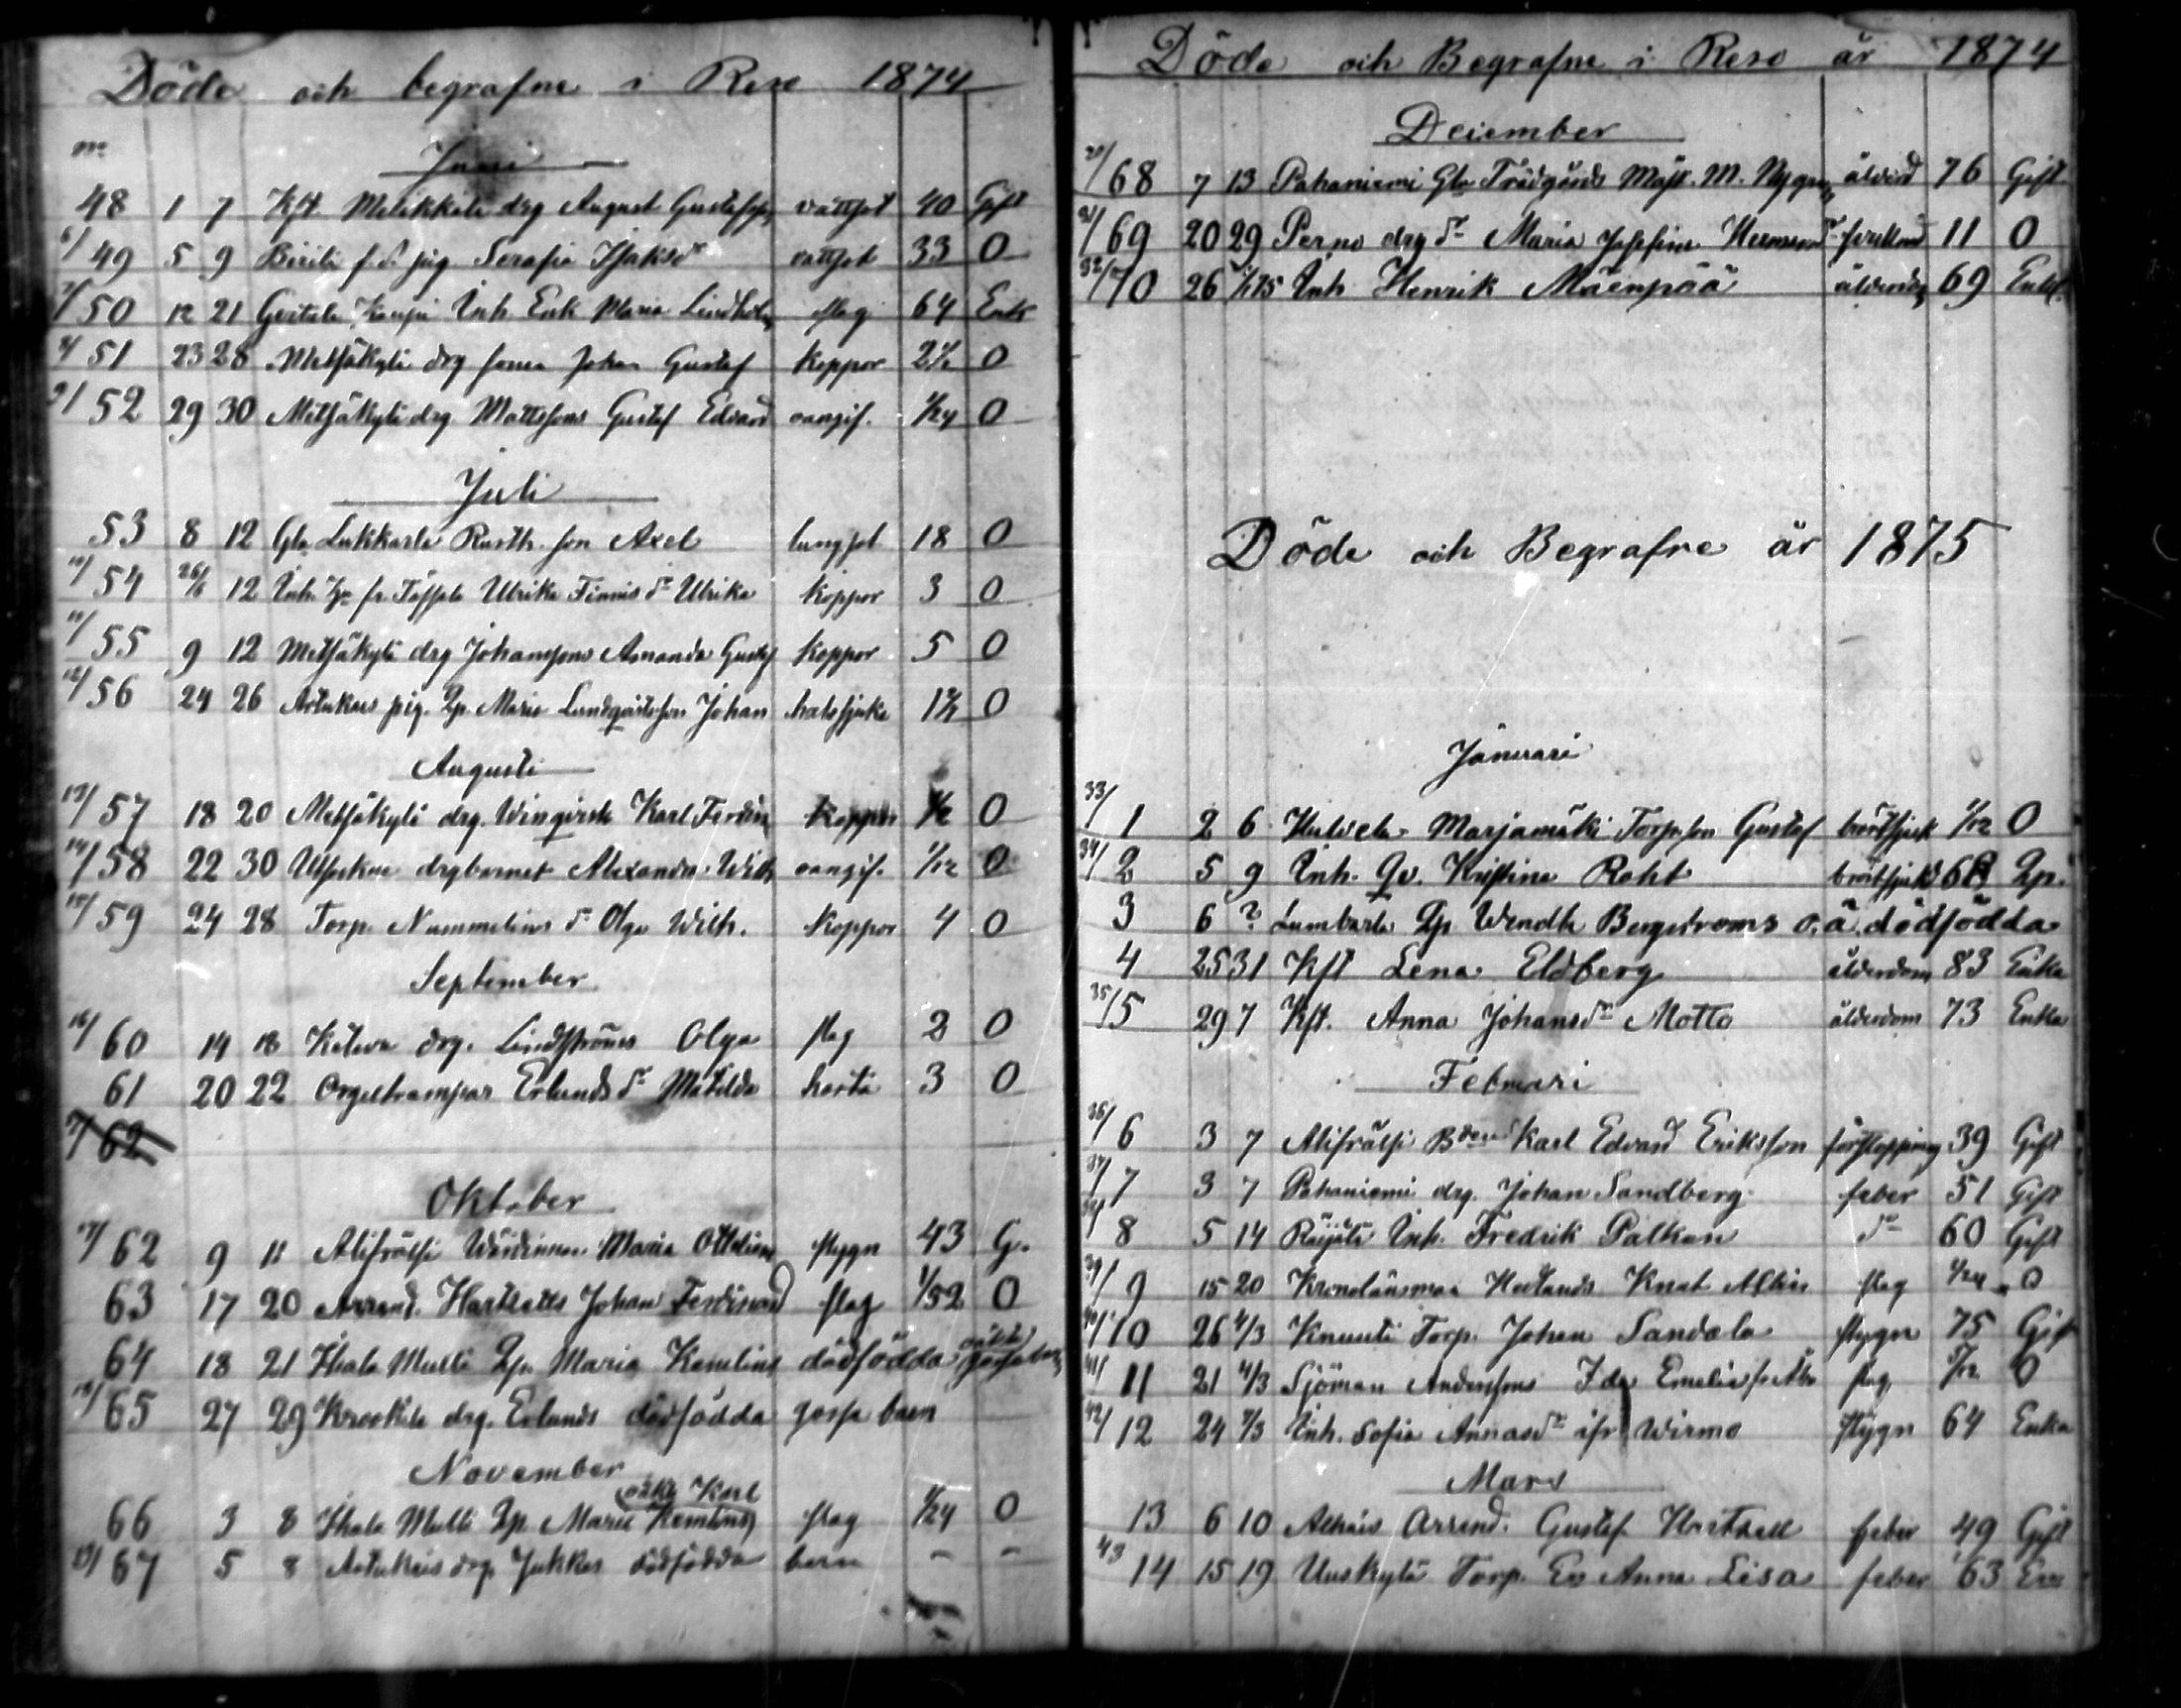 Döde och begrafne i Reso 1874
Juni
48 1 7 Kft Meltikkala drg August Gustafsson vattsot 40 Gift
6/ 49 5 9 f.d. pig Serafia Isaksdr vattsot 33 0
7/ 50 12 21 Inh. Enk Maria Lindholm slag 64 Enk
8/ 51 23 28 Metsäkylä drg sonen Johan Gustaf koppor 2½ 0
9/ 52 29 30 Metsäkylä drg Mattssons Gustaf Edvard oangif. 1/24 0
Juli
53 8 12 Gla Lukkarla Rusth. son Axel lungsot 18 0
10/ 54 26/6 12 Inh. fr. Ulrika Finnis dr Ulrika koppor 3 0
11/ 55 9 12 Metsäkylä drg Johanssons Amanda Gustaf koppor 5 0
12/ 56 24 26 Artukais pig. Qp. Maria Lundqvists son Johan halssjuka 1½ 0
Augusti
13/ 57 18 20 Metsäkylä drg. Winqvists Karl Ferdin koppor ½ 0
14/ 58 22 30 drgbarnet Alexandra Wilh oangif. 1/12 0
15/ 59 24 28 Torp. Nummelins dr Olga Wilh. koppor 4 0
September
16/ 60 14 18 drg. Lindströms Olga slag 2 0
61 20 22 Orgeltrampar Erlunds dr Matilda hosta 3 0
17/ 62
Oktober
17/ 62 9 11 Alifrälsi Wärdinnan Maria stygn 43 G.
63 17 20 Arrend. Hartzells Johan Ferdinand slag 1/52 0
64 18 21 Ihala Mulli Qp. Maria Kemlins dödfödda oäkta gossebarn
18/ 65 27 29 Krookila drg. Erlunds dödfödda gosse barn
November
oäkt Karl
66 3 8 Ihala Mulli Qp Maria Kemlins slag 1/24 0
19/ 67 5 8 Artukais drg Jukkas dödfödda barn - -
Döde och Begrafne i Reso år 1874
December
20/ 68 7 13 Pahaniemi Gla Trädgårds Mäst. M. Nygren ålderd 76 Gift
31/ 69 20 29 Perno drg dr Maria Josefina 11 0
32/ 70 26 1/1 75 Inh Henrik Mäenpää ålderdom 69 Enkl.
Döde och Begrafne år 1875
Januari
33/ 1 2 6 Marjamäki Torp. son Gustaf bröstsjuk 1/12 0
34/ 2 5 9 Inh. Qv. Kristina Roht bröstsjukd 68 Qp.
3 6 ? Lumbarla Qp Wendla Bergströms o.ä. dödfödda
4 25 31 Kft Lena Eldberg ålderdom 83 Enka
35/ 5 29 7 Kft. Anna Johansdr Motto ålderdom 73 Enka
Februari
36/ 6 3 7 Alifrälsi Bden Karl Edvard Eriksson förstoppning 39 Gift
37/ 7 3 7 Pahaniemi drg. Johan Sandberg feber 51 Gift
38/ 8 5 14 Inh. Fredrik Palkan dr 60 Gift
39/ 9 15 20 Kronolänsman Knut slag 1/24 0
40/ 10 26 4/3 Knuuti Torp. Johan Sandala stygn 75 Gift
41/ 11 21 4/3 Sjöman Anderssons Ida Emelia fr. Åbo slag 5/12 0
42/ 12 24 7/3 Inh. Sofia Annasdr ifr Wirmo stygn 64 Enka
Mars
13 6 10 Arrend. Gustaf Hartzell feber 49 Gift
43 14 15 19 Uuskylä Torp. Anna Lisa feber 63